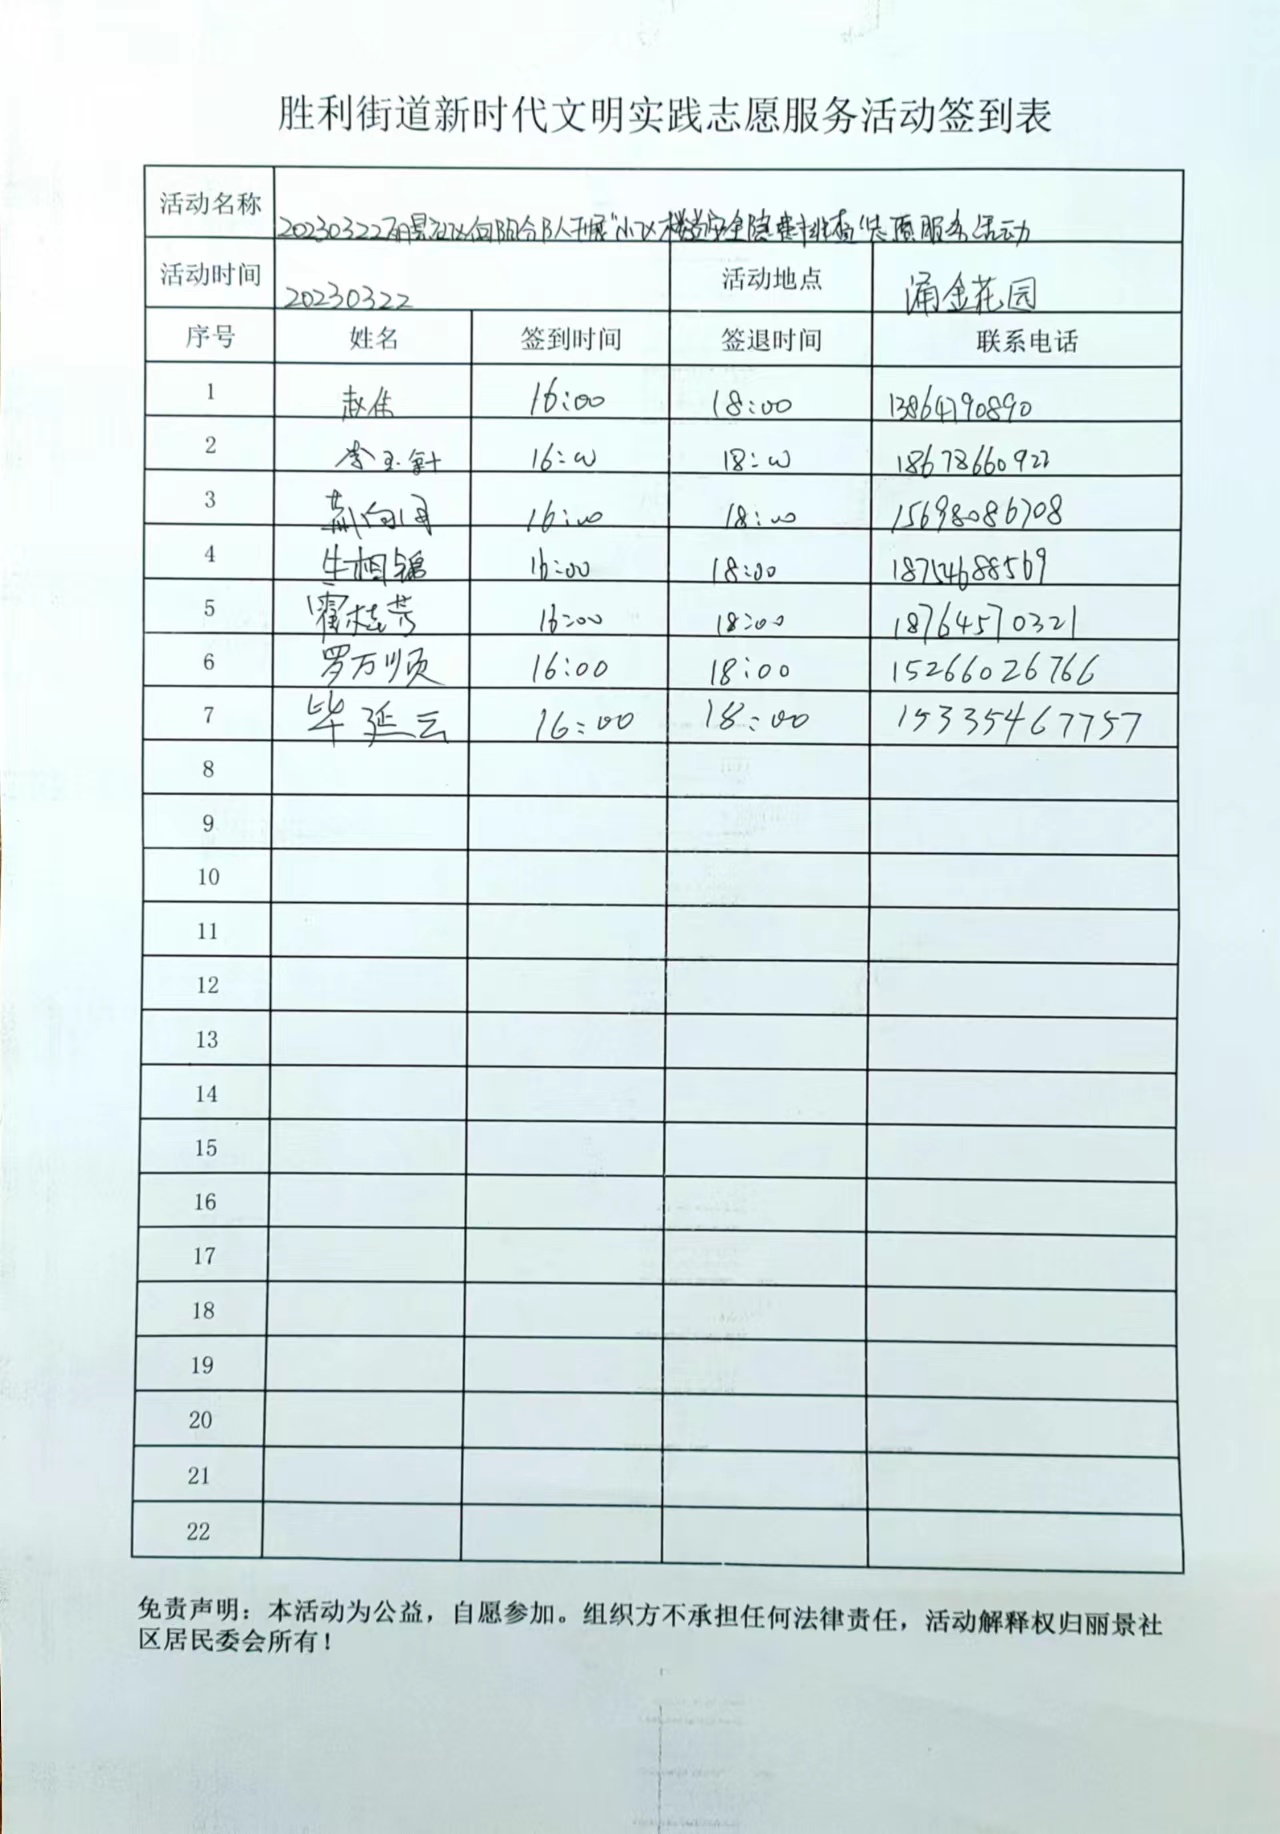 胜利街道新时代文明实践志愿服务活动签到表
活动名称 20230322丽景社区向阳分队开展"小区楼道安全隐患排查"志愿服务活动
活动时间 20230322 活动地点 涌金花园
序号 姓名 签到时间 签退时间 联系电话
1 赵伟 16:00 18:00 13864790890
2 李玉 16:00 18:00 18678660922
3 向 16:00 18:00 15698086708
4 牛相锦 16:00 18:00 18754688569
5 霍桂芳 16:00 18:00 18764570321
6 罗万顺 16:00 18:00 15266026766
7 毕延云 16:00 18:00 15335467757
8
9
10
11
12
13
14
15
16
17
18
19
20
21
22
免责声明：本活动为公益，自愿参加。组织方不承担任何法律责任，活动解释权归丽景社
区居民委会所有！